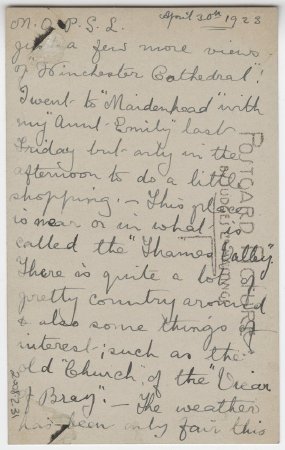 M. O. P. S. L. April 30th 1923
just a few more views
of "Winchester Cathedral"!
I went to "Maidenhead" with
my "Aunt-Emily" last
Friday but only in the
afternoon to do a little
shopping. – This place
is near or in what is
called the "Thames Valley"
There is quite a lot
pretty country around
& also some things of
interest; such as the
old "Church", of the "Vicar
of Bray". – The weather
has been only fair this
POSTCARD